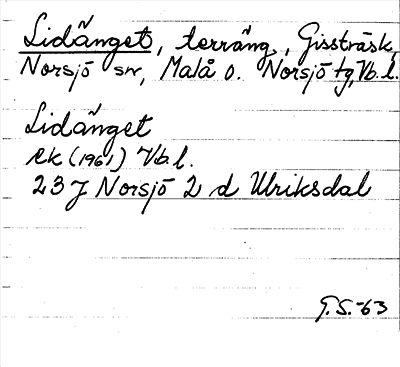 Lidänget, terräng, Gissträsk,
Norsjö sn, Malå o. Norsjö tg, Vb.l.
Lidänget
ek (1961) Vb.l.
23J Norsjö 2 d Ulriksdal
G.S.-63